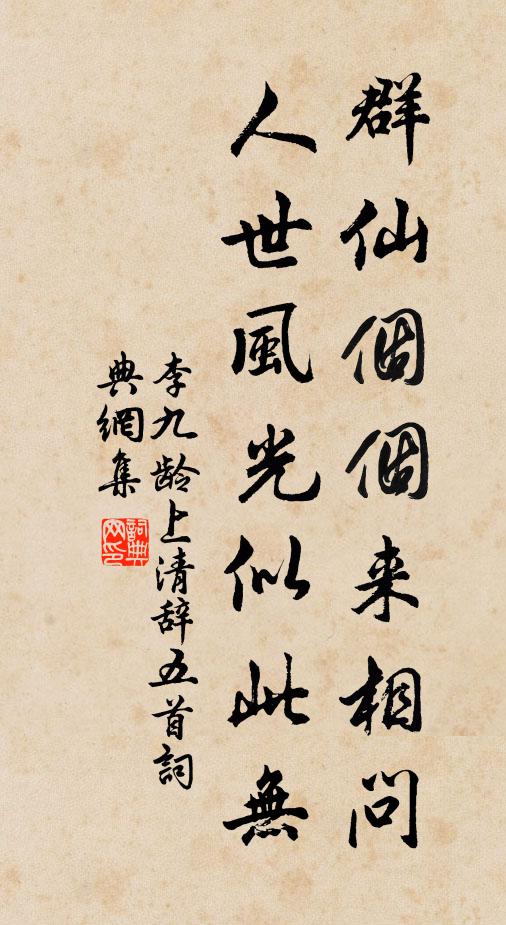 群仙個個来相问
人世風光似此無
李九龄上清辞五首詞
典網集
詞典网印